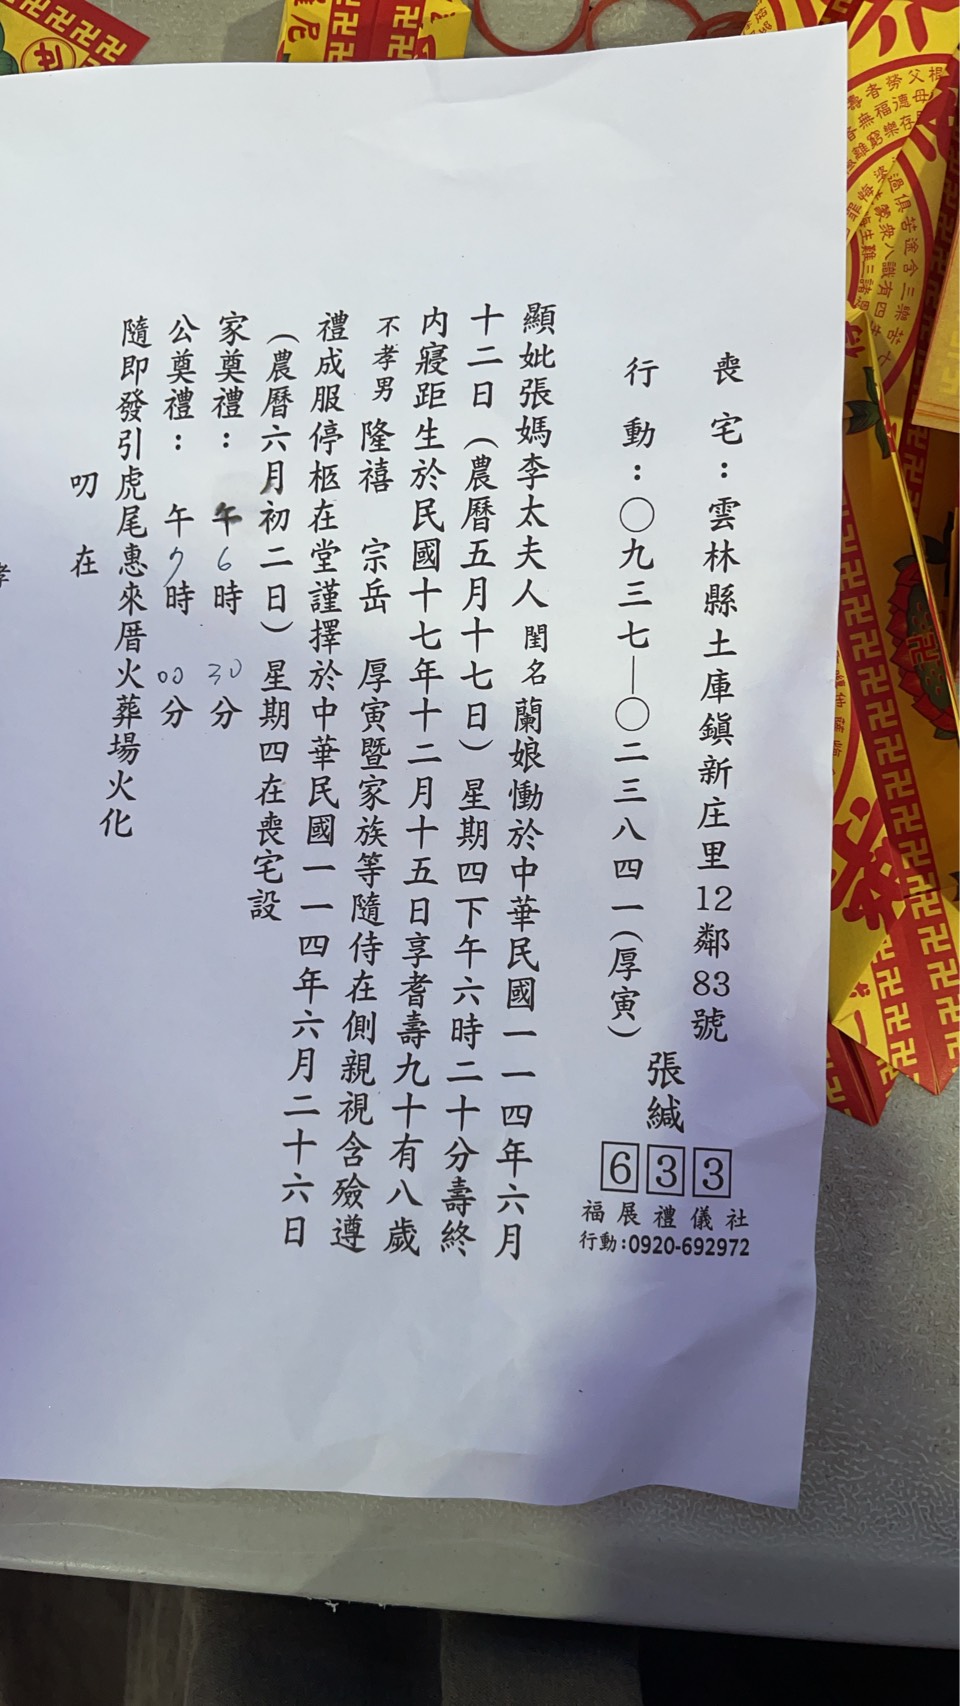 喪宅：雲林縣土庫鎮新庄里12鄰83號
行動：〇九三七—〇二三八四一(厚寅)
張緘
633
福展禮儀社
行動:0920-692972
顯妣張媽李太夫人閨名蘭娘慟於中華民國一一四年六月
十二日(農曆五月十七日)星期四下午六時二十分壽終
內寢距生於民國十七年十二月十五日享耆壽九十有八歲
不孝男隆禧 宗岳 厚寅暨家族等隨侍在側親視含殮遵
禮成服停柩在堂謹擇於中華民國一一四年六月二十六日
(農曆六月初二日)星期四在喪宅設
家奠禮： 午6時30分
公奠禮： 午7時00分
隨即發引虎尾惠來厝火葬場火化
叨在